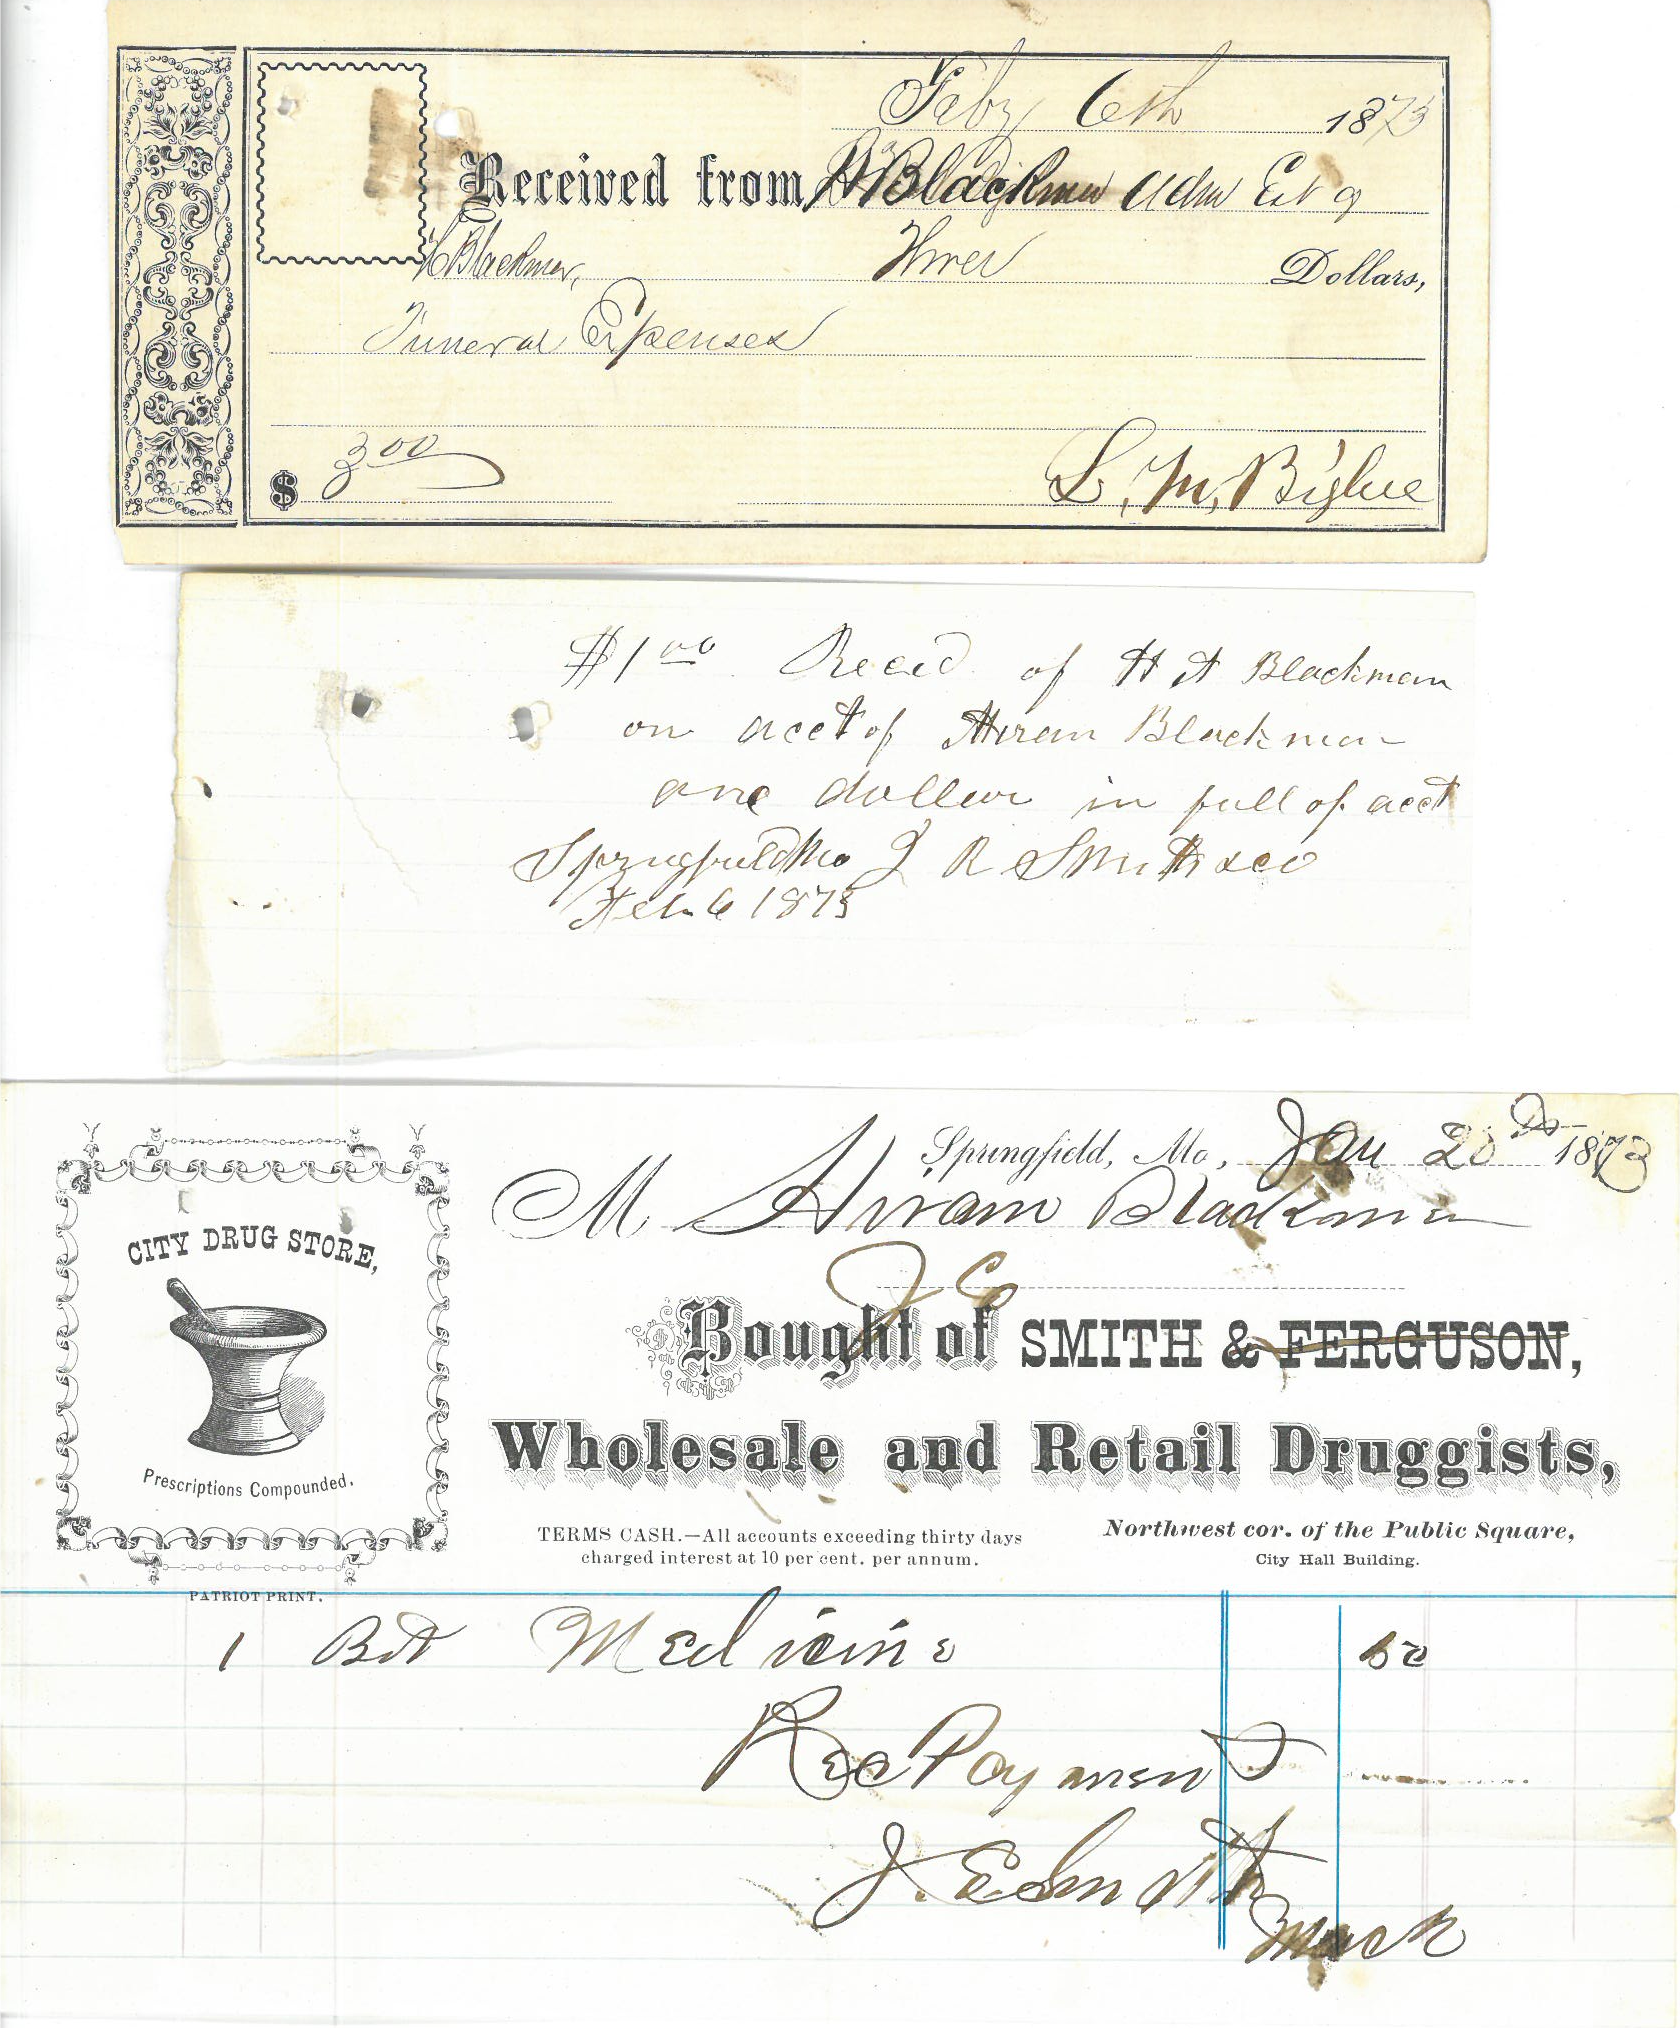 Feby 6th 1873
Received from Blackman Adm Est of
H Blackman, Three Dollars,
Funeral Expenses
$ 3 00
L. M. Biglue
$1 00 Recd of H A Blackman
on acct of Hiram Blackman
one dollar in full of acct
Springfield Mo J R Smith & co
Feb 6 1873
Springfield, Mo, Jan 20 1873
M Hiram Blackman
CITY DRUG STORE,
J E
Bought of SMITH & FERGUSON,
Wholesale and Retail Druggists,
Prescriptions Compounded.
TERMS CASH.—All accounts exceeding thirty days
charged interest at 10 per cent. per annum.
Northwest cor. of the Public Square,
City Hall Building.
PATRIOT PRINT.
1 Bot Medicine 50
Rec Payment
J. E Smith
Mack